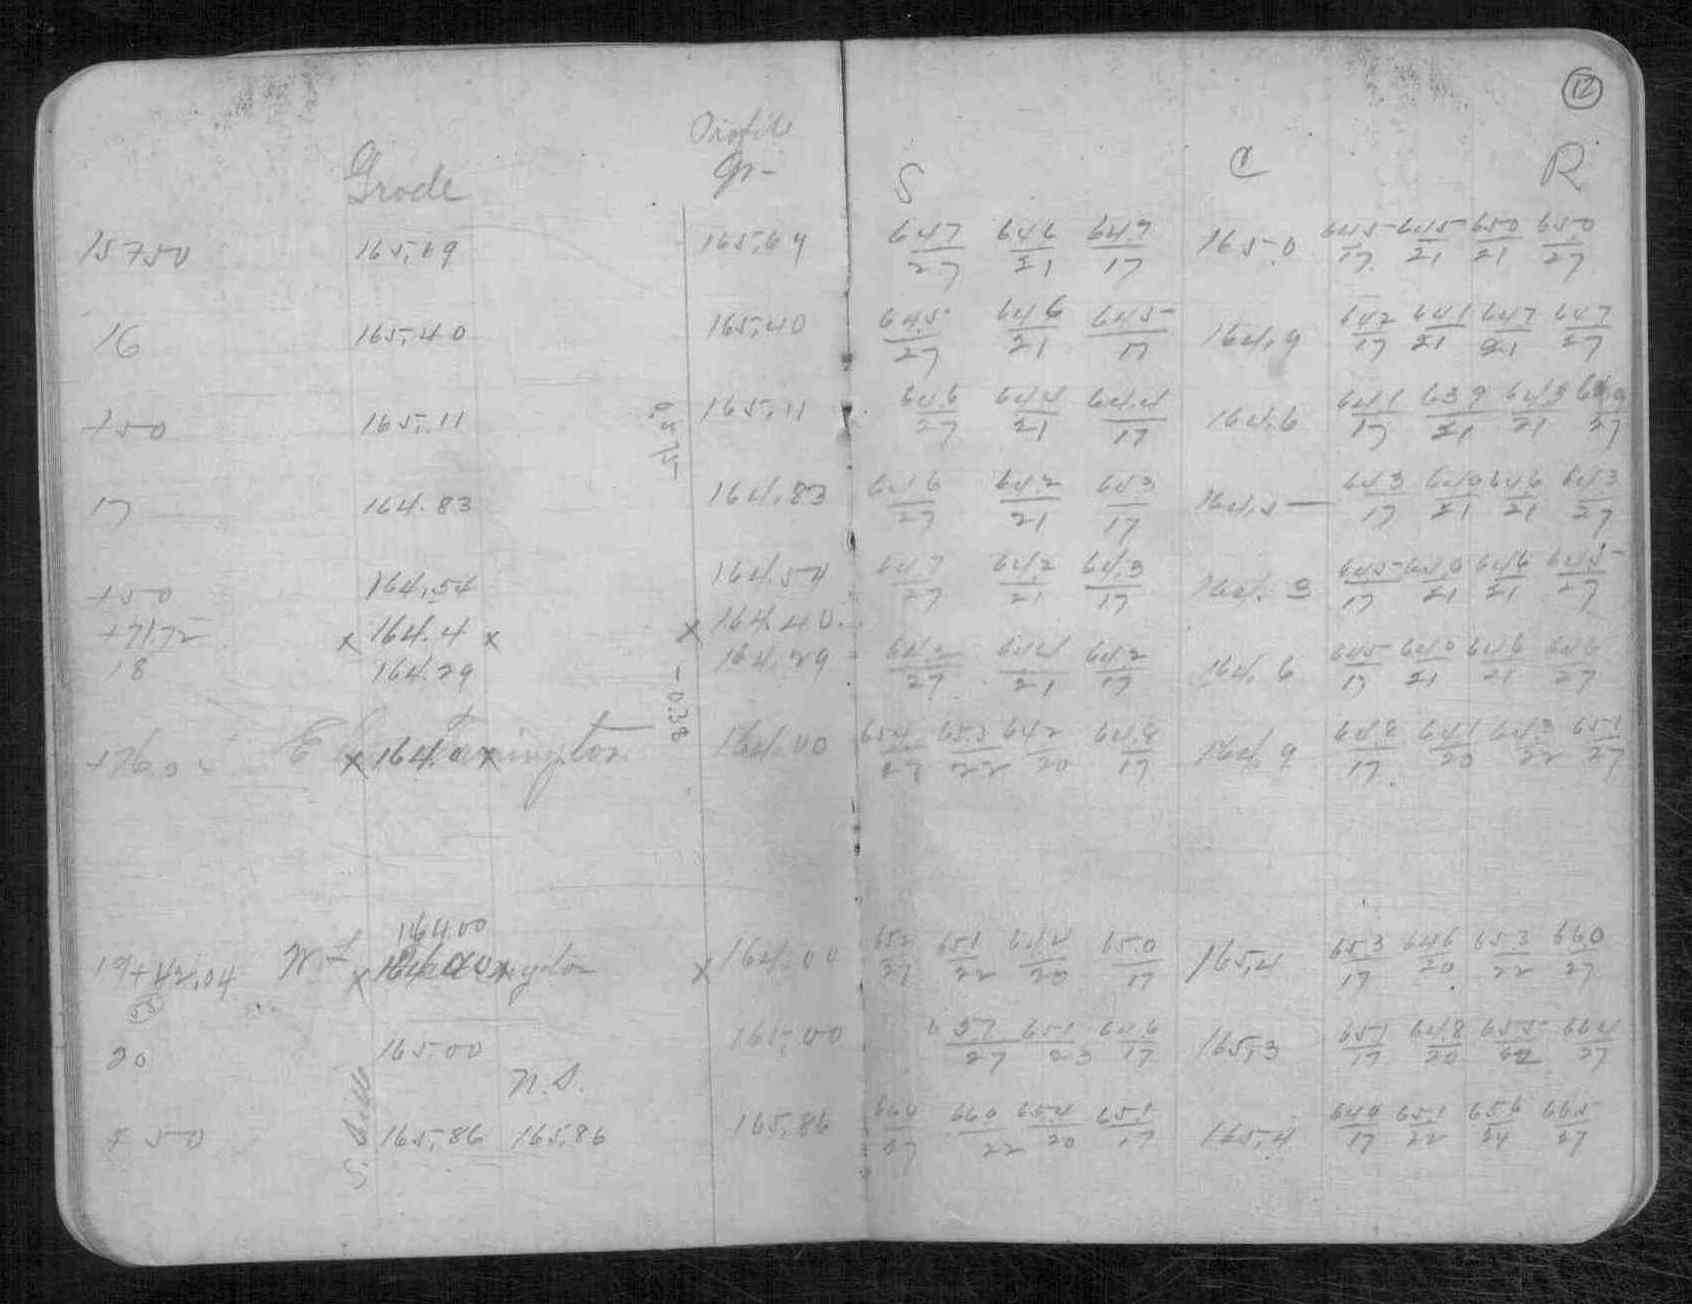 12
Profile
Grade Gr- S C R
15+50 165.69 165.69 647/27 646/21 649/17 165.0 645/17 645/21 650/21 650/27
16 165.40 165.40 645/27 646/21 645/17 164.9 642/17 641/21 647/21 647/27
+50 165.11 165.11 646/27 644/21 644/17 164.6 641/17 639/21 /21 /27
17 164.83 164.83 646/27 642/21 643/17 643/17 /21 646/21 643/27
+50 164.54 164.54 647/27 642/21 643/17 164.3 645/17 /21 646/21 645/27
+71.72 x 164.4 x x 164.40
18 164.29 -038 164.29 /27 644/21 642/17 164.6 645/17 640/21 646/21 646/27
E L x 164.0 x ington 164.00 654/27 653/22 642/20 648/17 164.9 648/17 641/20 643/22 651/27
164.00
19+42.04 W L x x ington x 164.00 652/27 651/22 644/20 650/17 165.4 653/17 646/20 653/22 660/27
20 165.00 165.00 657/27 651/23 646/17 165.3 651/17 648/20 655/22 664/27
N.S.
+50 S. Side 165.86 165.86 165.86 660/27 660/22 654/20 651/17 165.4 649/17 651/22 656/24 665/27